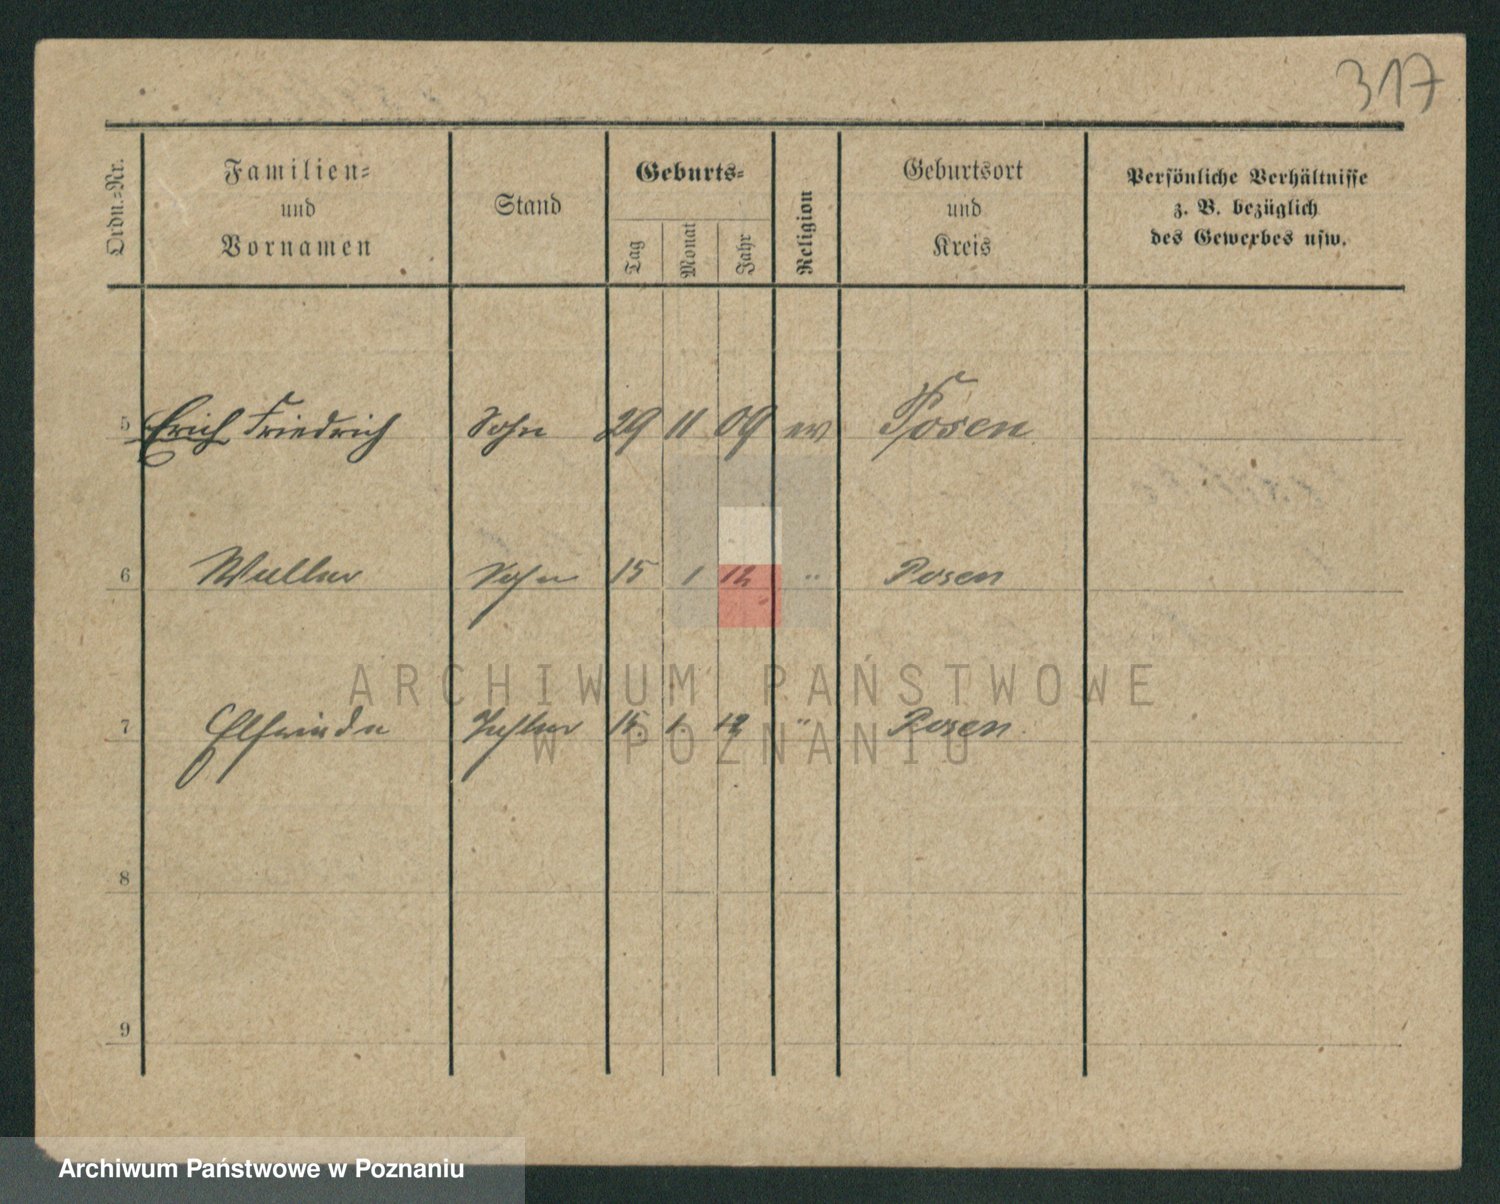 317
Ordn.-Nr.
Familien-
und
Vornamen
Stand
Geburts-
Tag
Monat
Jahr
Religion
Geburtsort
und
Kreis
Persönliche Verhältnisse
z. B. bezüglich
des Gewerbes usw.
5 Erich Friedrich Sohn 29 11 09 ev Posen
6 Sohn 15 1 12 " Posen
ARCHIWUM PAŃSTWOWE
7 Elfriede Tochter 15. 1. 12 " Posen.
W POZNANIU
8
9
Archiwum Państwowe w Poznaniu